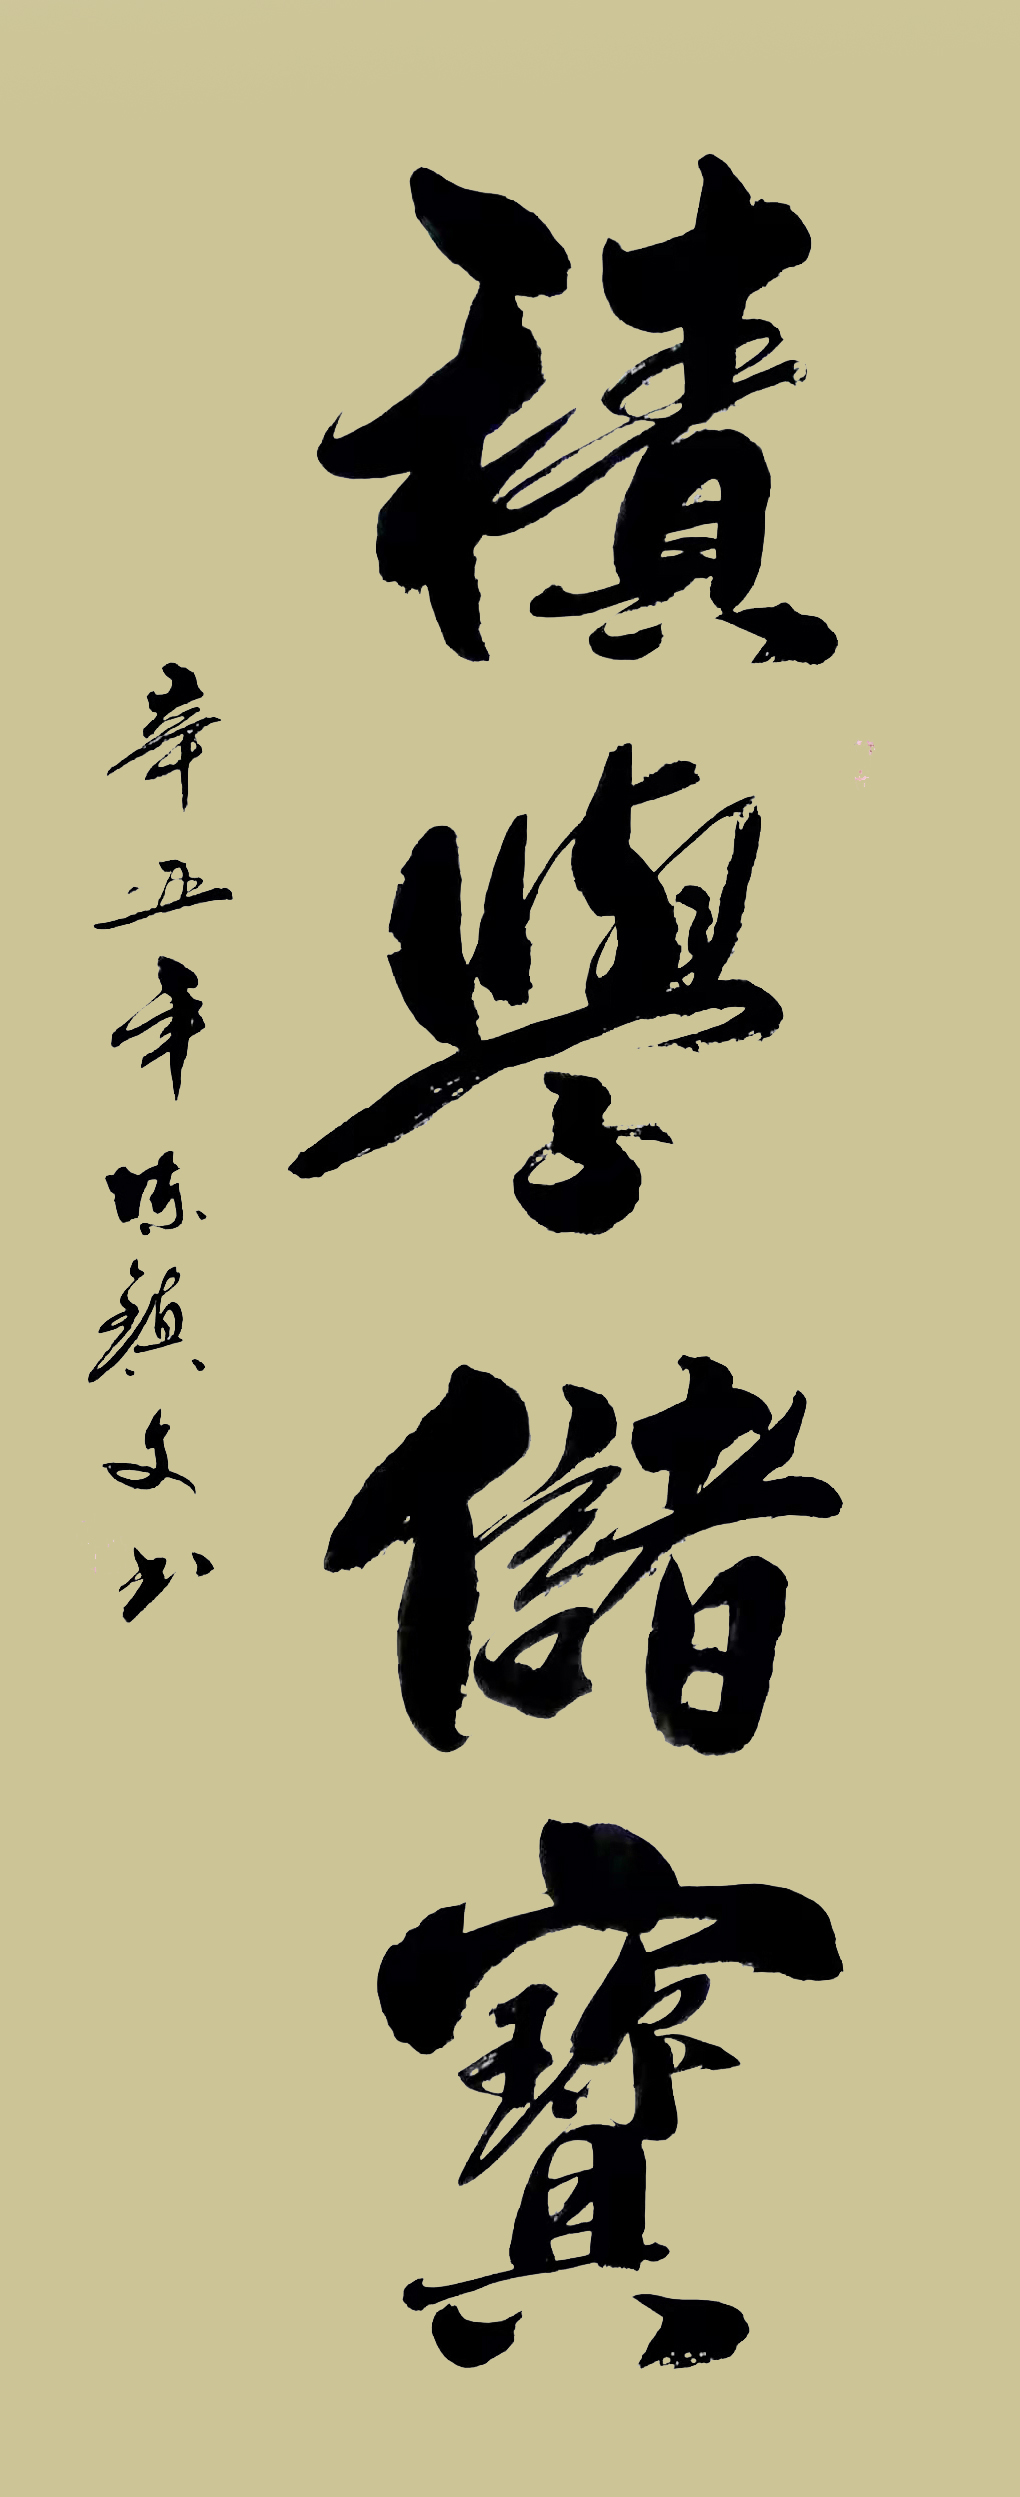 積學儲寶
辛丑年 陳顯文书